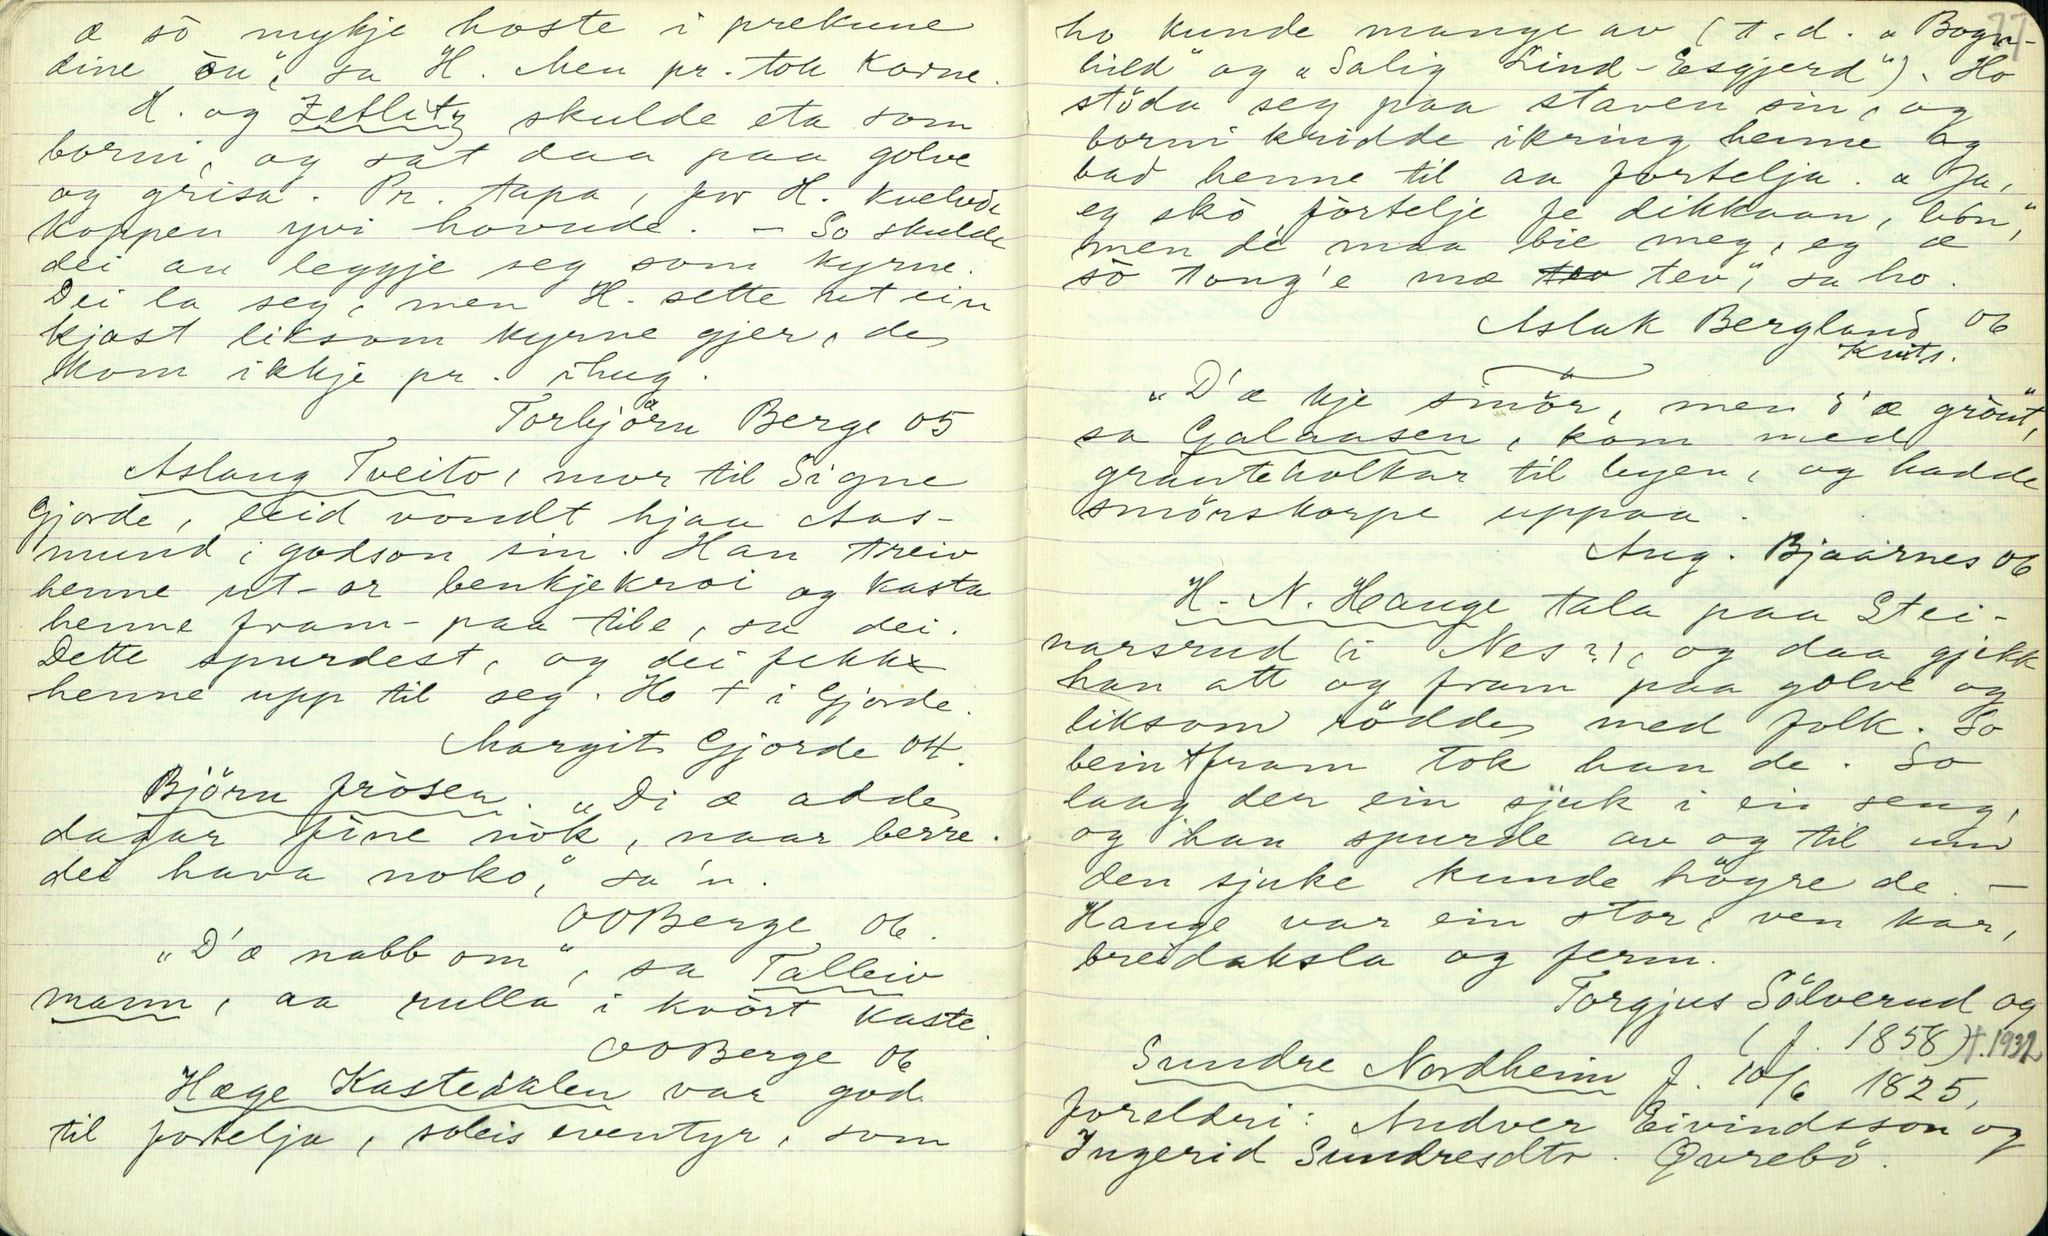 æ sò mykje hoste i prekune
dine òu", sa H. Men pr. tok Korne.
H. og Zetlitz skulde eta som
borni, og sat daa paa golve
og grisa. Pr. tapa, for H. kvelvde
koppen yvi hovude. - So skulde
dei au leggje seg som kyrne.
Dei la seg, men H. sette ut ein
kjast liksom kyrne gjer, de
kom ikkje pr. ihug.
Torbjörn Berge 05
Aslaug Tveito, mor til Signe
Gjorde, leid vondt hjaa Aas-
mund, godson sin. Han treiv
henne ut-or benkjekroi og kasta
henne fram-paa tile, sa dei.
Dette spurdest, og dei fekk
henne upp til seg. Ho † i Gjorde.
Margit Gjorde 04.
Björn fròsen. "Di æ adde
dagar fine nòk, naar berre
dei hava noko", sa'n.
OOBerge 06.
"D'æ nabb om", sa Talleiv
mann, aa rulla i kvòrt kaste.
OOBerge 06
Hæge Kastedalen var god
til fortelja, soleis eventyr, som
77
ho kunde mange av (t.d. "Bogn-
hild" og "Salig Lind-Esgjerd"). Ho
stöda seg paa staven sin, og
borni kridde ikring henne og
bad henne til aa fortelja. "Ja,
eg skò fòrtelje fe dikkaan, bòn,"
men dè maa bie meg, eg æ
sò tong'e mæ tev", sa ho.
Aslak Bergland 06
Kvits.
"D'æ kje smör, men d'æ grönt",
sa Galaasen, kom med
grauteholkar til legen, og hadde
smörskorpe uppaa.
Aug. Bjaarnes 06
H. N. Hauge tala paa Stei-
narsrud (i Nes?), og daa gjekk
han att og fram paa golve og
liksom rödde med folk. So
beintfram tok han de. So
laag der ein sjuk i ei seng,
og han spurde av og til um
den sjuke kunde högre de. -
Hauge var ein stor, ven kar,
breidaksla og ferm.
Torgjus Sölverud og
(f. 1858) †.1932
Sundre Nordheim f. 10/6 1825,
foreldri: Andver Eivindsson og
Ingerid Sundresdtr. Øvrebö.